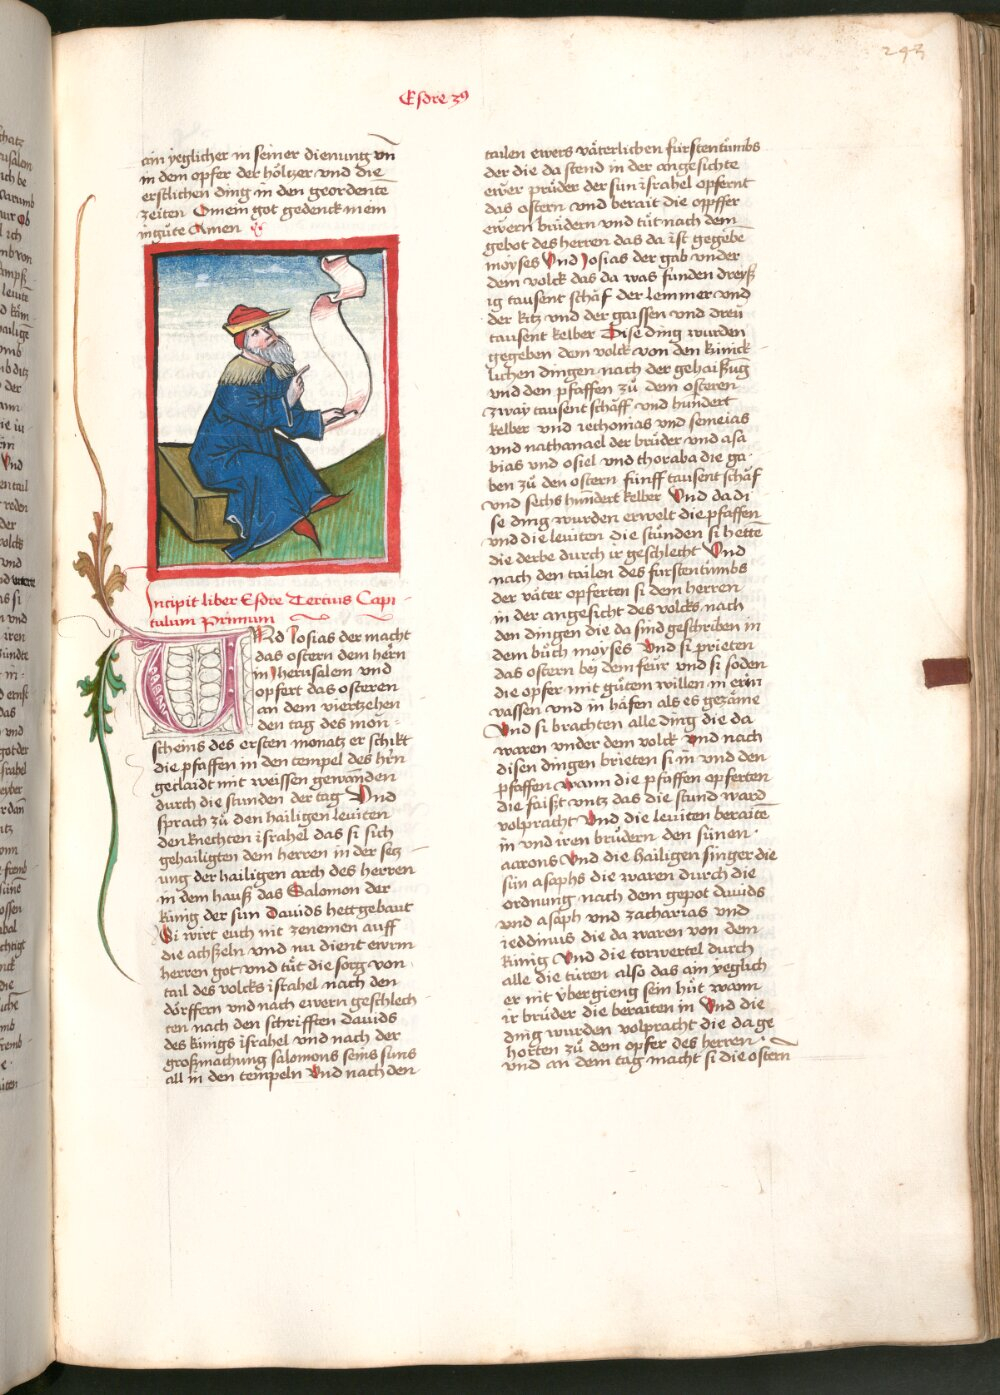 243
Esdre 3⁹
ain yeglicher in seiner dienung vn̄
in dem opfer der höltzer vnd die
erstlichen ding in den geordente
zeiten O mein got gedenck mein
in güte Amen
Incipit liber Esdre Tercius Capi-
tulum Primum
Vnd Josias der macht
das ostern dem hern̄
in Jherusalem vnd
opfert das osteren
an dem viertzehen
den tag des mon=
scheins des ersten monatz er schikt
die pfaffen in den tempel des hr̄n
geclaidt mit weissen gewanden
durch die stunden der tag Vnd
sprach zů den hailigen leuiten
den knechten israhel das si sich
gehailigten dem herren in der setz-
ung der hailigen arch des herren
in dem hauß das Salomon der
künig der sun Dauids hett gebaut
Ei wirt euch nit zenemen auff
die achßeln vnd nu dient ewrm
herren got vnd tůt die sorg von
tail des volcks israhel nach den
dörffern vnd nach ewern geschlech-
ten nach den schrifften dauids
des künigs israhel vnd nach der
großmachung salomons seins suns
all in den tempeln Vnd nach den
tailen ewers väterlichen fürstentůmbs
der die da stend in der angesichte
ewer prüder der sun israhel opfernt
das ostern vnd berait die opffer
ewern brüdern vnd tůt nach dem
gebot des herren das da ist gegebē
moyses Vnd Josias der gab vnder
dem volck das da was funden dreyß
ig tausent schäf der lemmer vnd
der kitz vnd der gaissen vnd dreü
tausent kelber Dise ding wurden
gegeben dem volck von den künick-
lichen dingen nach der gehaissūg
vnd den pfaffen zů dem osteren
zway tausent schäff vnd hundert
kelber vnd iechonias vnd semeias
vnd nathanael der brüder vnd asa
bias vnd osiel vnd thoraba die ga-
ben zů den ostern fünff tausent schäf
vnd sechs hundert kelber Vnd da di
se ding wurden erwelt die pfaffen
vnd die leuiten die stůnden si hettē
die derbe durch ir geschlecht Vnd
nach den tailen des furstentumbs
der väter opferten si dem herren
in der angesicht des volcks nach
den dingen die da sind geschriben in
dem bůch moyses Vnd si prieten
das ostern bei dem feür vnd si soden
die opfer mit gůtem willen in erin
vassen vnd in häfen als es gezäme
Vnd si brachten alle ding die da
waren vnder dem volck Vnd nach
disen dingen brieten si in vnd den
pfaffen Wann die pfaffen opferten
die faißt vntz das die stund ward
volpracht Vnd die leuiten beraitē
in vnd iren brüdern den sünen
aarons Vnd die hailigen singer die
sün asaphs die waren durch die
ordnung nach dem gepot dauids
vnd asaph vnd zacharias vnd
ieddinus die da waren von dem
künig Vnd die torwertel durch
alle die türen also das ain yeglich
er nit v̈bergieng sein hůt wann
ir brüder die beraiten in Vnd die
ding wurden volpracht die da ge
horten zů dem opfer des herren
vnd an dem tag macht si die ostern